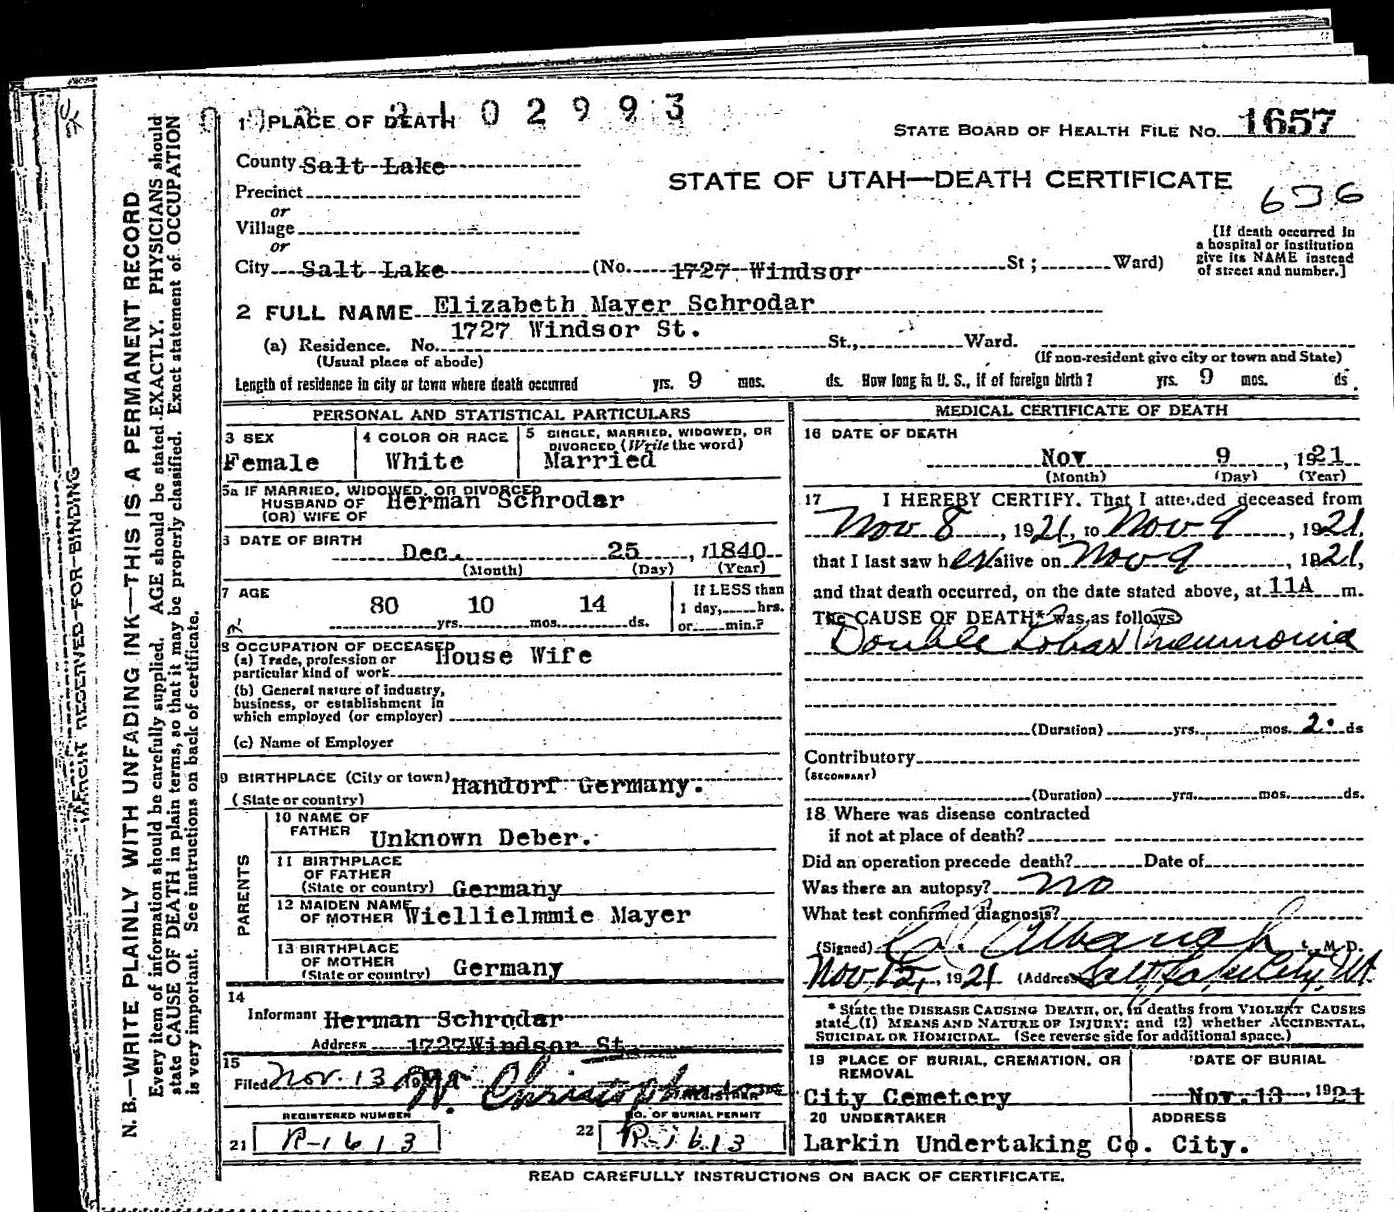 2102993
1 PLACE OF DEATH
STATE BOARD OF HEALTH FILE No. 1657
County Salt Lake
STATE OF UTAH—DEATH CERTIFICATE
Precinct
636
or
Village
or
[If death occurred in
a hospital or institution
give its NAME instead
of street and number.]
City Salt Lake (No. 1727 Windsor St; Ward)
2 FULL NAME Elizabeth Mayer Schrodar
1727 Windsor St.
(a) Residence. No. St., Ward.
(Usual place of abode) (If non-resident give city or town and State)
Length of residence in city or town where death occurred yrs. 9 mos. ds. How long in U. S., if of foreign birth? yrs. 9 mos. ds.
PERSONAL AND STATISTICAL PARTICULARS
3 SEX
Female
4 COLOR OR RACE
White
5 SINGLE, MARRIED, WIDOWED, OR
DIVORCED (Write the word)
Married
5a IF MARRIED, WIDOWED, OR DIVORCED
HUSBAND OF Herman Schrodar
(OR) WIFE OF
6 DATE OF BIRTH
Dec. 25, 1840
(Month) (Day) (Year)
7 AGE
80 yrs. 10 mos. 14 ds.
If LESS than
1 day, hrs.
or min.?
8 OCCUPATION OF DECEASED
(a) Trade, profession or
particular kind of work House Wife
(b) General nature of industry,
business, or establishment in
which employed (or employer)
(c) Name of Employer
9 BIRTHPLACE (City or town) Handorf Germany.
(State or country)
PARENTS
10 NAME OF
FATHER Unknown Deber.
11 BIRTHPLACE
OF FATHER
(State or country) Germany
12 MAIDEN NAME
OF MOTHER Wiellielmmie Mayer
13 BIRTHPLACE
OF MOTHER
(State or country) Germany
14
Informant Herman Schrodar
Address 1727 Windsor St.
15
Filed Nov. 13
REGISTRAR
REGISTERED NUMBER
21 R-1613
NO. OF BURIAL PERMIT
22 R-1613
MEDICAL CERTIFICATE OF DEATH
16 DATE OF DEATH
Nov 9, 1921
(Month) (Day) (Year)
17 I HEREBY CERTIFY. That I attended deceased from
Nov 8, 1921, to Nov 9, 1921,
that I last saw her alive on Nov 9, 1921,
and that death occurred, on the date stated above, at 11A m.
The CAUSE OF DEATH* was as follows
Double Lobar Pneumonia
(Duration) yrs. mos. 2 ds
Contributory
(SECONDARY)
(Duration) yrs. mos. ds.
18 Where was disease contracted
if not at place of death?
Did an operation precede death? Date of
Was there an autopsy? No
What test confirmed diagnosis?
(Signed) M.D.
Nov 12, 1921 (Address Salt Lake City, Ut
* State the DISEASE CAUSING DEATH, or, in deaths from VIOLENT CAUSES
state (1) MEANS AND NATURE OF INJURY; and (2) whether ACCIDENTAL,
SUICIDAL OR HOMICIDAL. (See reverse side for additional space.)
19 PLACE OF BURIAL, CREMATION, OR
REMOVAL
City Cemetery
DATE OF BURIAL
Nov. 13 1921
20 UNDERTAKER ADDRESS
Larkin Undertaking Co. City.
READ CAREFULLY INSTRUCTIONS ON BACK OF CERTIFICATE.
MARGIN RESERVED FOR BINDING
N. B.—WRITE PLAINLY WITH UNFADING INK—THIS IS A PERMANENT RECORD
Every item of information should be carefully supplied. AGE should be stated EXACTLY. PHYSICIANS should
state CAUSE OF DEATH in plain terms, so that it may be properly classified. Exact statement of OCCUPATION
is very important. See instructions on back of certificate.